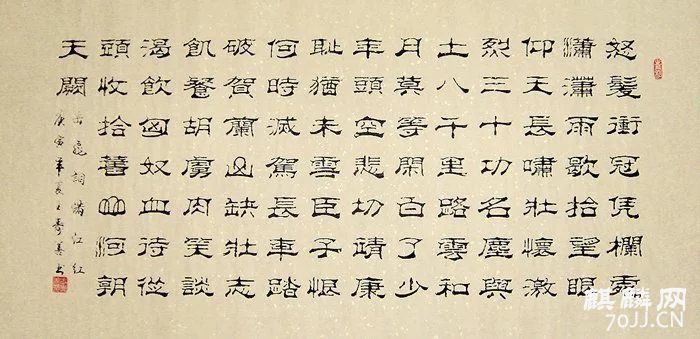 怒髮衝冠凭欄處
瀟瀟雨歇抬望眼
仰天長嘯壯懷激
烈三十功名塵與
土八千里路雲和
月莫等閑白了少
年頭空悲切靖康
恥猶未雪臣子恨
何時滅駕長車踏
破賀蘭山缺壯志
飢餐胡虜肉笑談
渴飲匈奴血待從
頭收拾舊山河朝
天闕
岳飛詞滿江红
庚寅年夏
麒麟网
70JJ.CN